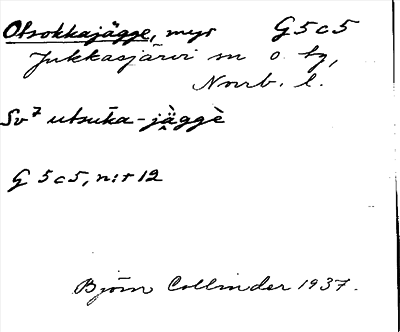 Otsokkajägge, myr G5c5
Jukkasjärvi sn o. tg,
Norrb. l.
Sv⁷ utsuka-jàggè
G 5c5, n:r 12
Björn Collinder 1937.